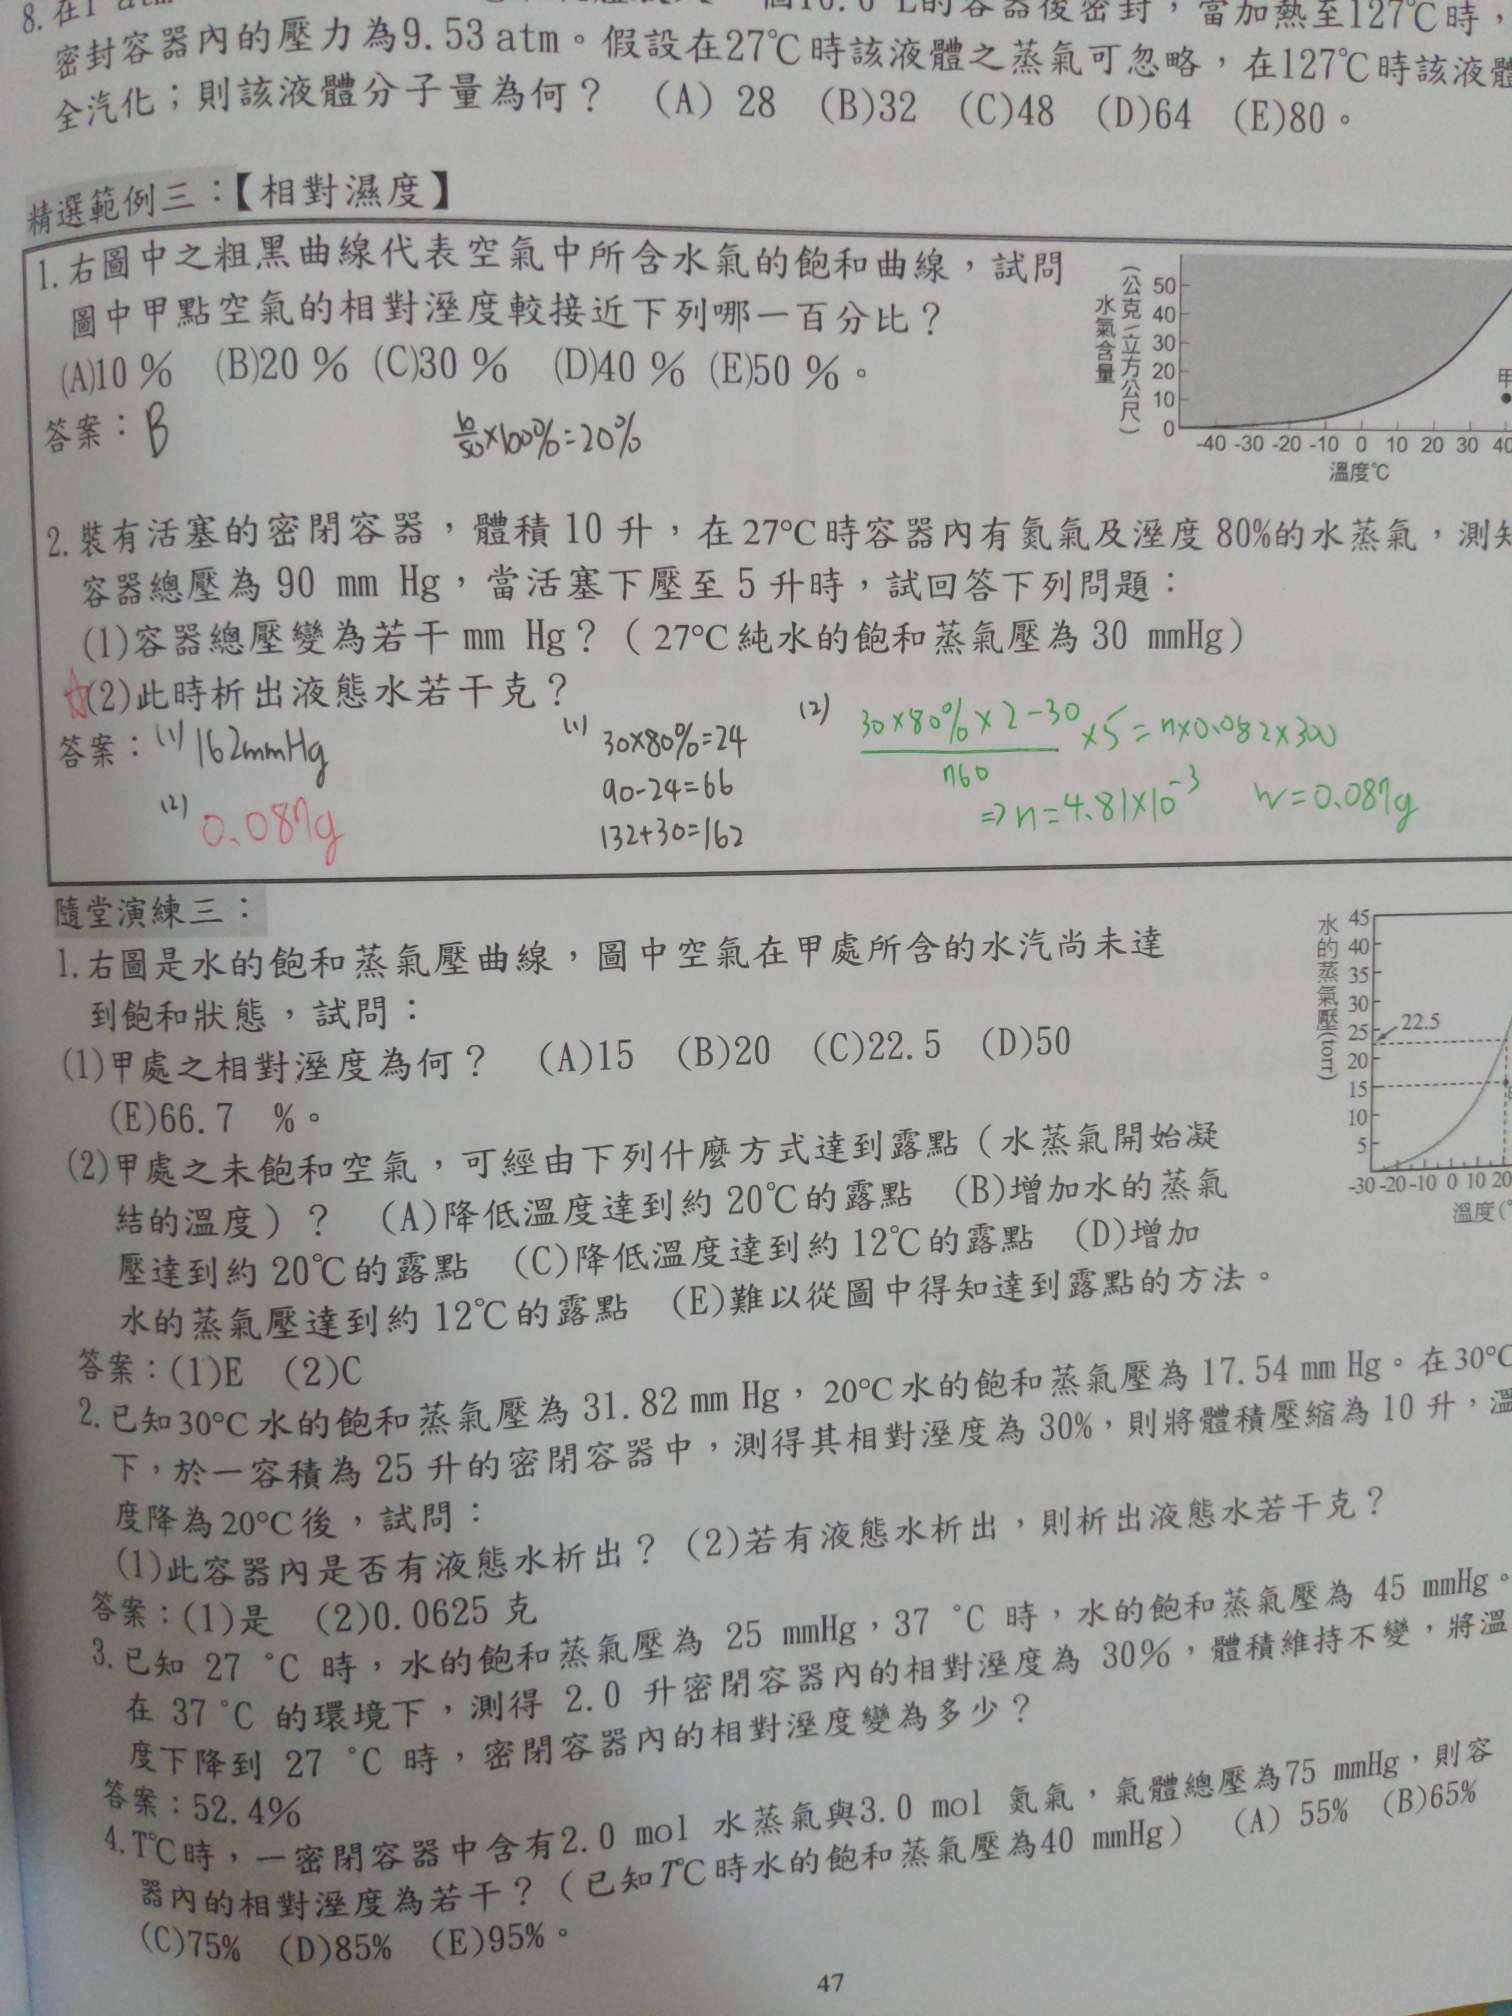 8. 在1 atm
L的容器後密封，當加熱至127℃時，
密封容器內的壓力為9.53 atm。假設在27℃時該液體之蒸氣可忽略，在127℃時該液體
全汽化；則該液體分子量為何？ (A) 28 (B)32 (C)48 (D)64 (E)80。
精選範例三：【相對濕度】
1. 右圖中之粗黑曲線代表空氣中所含水氣的飽和曲線，試問
圖中甲點空氣的相對溼度較接近下列哪一百分比？
(A)10 % (B)20 % (C)30 % (D)40 % (E)50 %。
答案：B
10/50×100%=20%
水氣含量
(公克/立方公尺)
50
40
30
20
10
0
甲
-40 -30 -20 -10 0 10 20 30 40
溫度℃
2. 裝有活塞的密閉容器，體積 10 升，在 27℃時容器內有氮氣及溼度 80%的水蒸氣，測知
容器總壓為 90 mm Hg，當活塞下壓至 5 升時，試回答下列問題：
(1)容器總壓變為若干 mm Hg？（ 27℃純水的飽和蒸氣壓為 30 mmHg）
☆(2)此時析出液態水若干克？
答案：(1) 162mmHg
(2) 0.087g
(1) 30×80%=24
90-24=66
132+30=162
(2) (30×80%×2-30)/760 ×5=n×0.082×300
⇒n=4.81×10⁻³ w=0.087g
隨堂演練三：
1. 右圖是水的飽和蒸氣壓曲線，圖中空氣在甲處所含的水汽尚未達
到飽和狀態，試問：
(1)甲處之相對溼度為何？ (A)15 (B)20 (C)22.5 (D)50
(E)66.7 %。
(2)甲處之未飽和空氣，可經由下列什麼方式達到露點（水蒸氣開始凝
結的溫度）？ (A)降低溫度達到約 20℃的露點 (B)增加水的蒸氣
壓達到約 20℃的露點 (C)降低溫度達到約 12℃的露點 (D)增加
水的蒸氣壓達到約 12℃的露點 (E)難以從圖中得知達到露點的方法。
答案：(1)E (2)C
水的蒸氣壓(torr)
45
40
35
30
25
22.5
20
15
10
5
-30 -20 -10 0 10 20
溫度(°
2. 已知30℃水的飽和蒸氣壓為 31.82 mm Hg，20℃水的飽和蒸氣壓為 17.54 mm Hg。在30℃
下，於一容積為 25 升的密閉容器中，測得其相對溼度為 30%，則將體積壓縮為 10 升，溫
度降為20℃後，試問：
(1)此容器內是否有液態水析出？ (2)若有液態水析出，則析出液態水若干克？
答案：(1)是 (2)0.0625 克
3. 已知 27 °C 時，水的飽和蒸氣壓為 25 mmHg，37 °C 時，水的飽和蒸氣壓為 45 mmHg。
在 37 °C 的環境下，測得 2.0 升密閉容器內的相對溼度為 30%，體積維持不變，將溫
度下降到 27 °C 時，密閉容器內的相對溼度變為多少？
答案：52.4%
4. T℃時，一密閉容器中含有2.0 mol 水蒸氣與3.0 mol 氮氣，氣體總壓為75 mmHg，則容
器內的相對溼度為若干？（已知T℃時水的飽和蒸氣壓為40 mmHg） (A) 55% (B)65%
(C)75% (D)85% (E)95%。
47